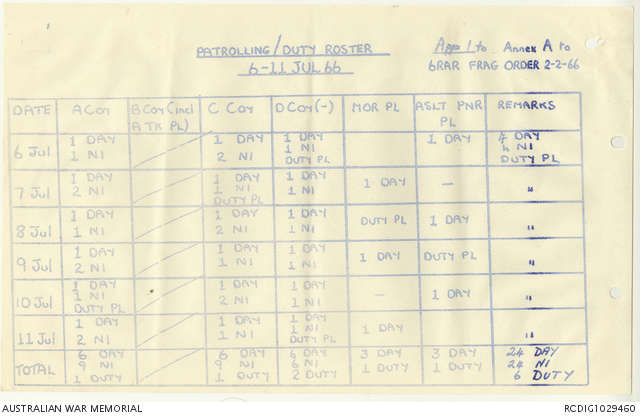 PATROLLING/DUTY ROSTER
6-11 JUL 66
App 1 to Annex A to
6RAR FRAG ORDER 2-2-66
DATE A Coy B Coy (incl C Coy D Coy (-) MOR PL ASLT PNR REMARKS
A TK PL) PL
6 Jul 1 DAY 1 DAY 1 DAY 1 DAY 4 DAY
1 NI 2 NI 1 NI 4 NI
DUTY PL DUTY PL
7 Jul 1 DAY 1 DAY 1 DAY 1 DAY — "
2 NI 1 NI 1 NI
DUTY PL
8 Jul 1 DAY 1 DAY 1 DAY DUTY PL 1 DAY "
1 NI 2 NI 1 NI
9 Jul 1 DAY 1 DAY 1 DAY 1 DAY DUTY PL "
2 NI 1 NI 1 NI
10 Jul 1 DAY 1 DAY 1 DAY – 1 DAY "
1 NI 2 NI 1 NI
DUTY PL
11 Jul 1 DAY 1 DAY 1 DAY 1 DAY "
2 NI 1 NI 1 NI
DUTY PL
TOTAL 6 DAY 6 DAY 6 DAY 3 DAY 3 DAY 24 DAY
9 NI 9 NI 6 NI 1 DUTY 1 DUTY 24 NI
1 DUTY 1 DUTY 2 DUTY 6 DUTY
AUSTRALIAN WAR MEMORIAL
RCDIG1029460